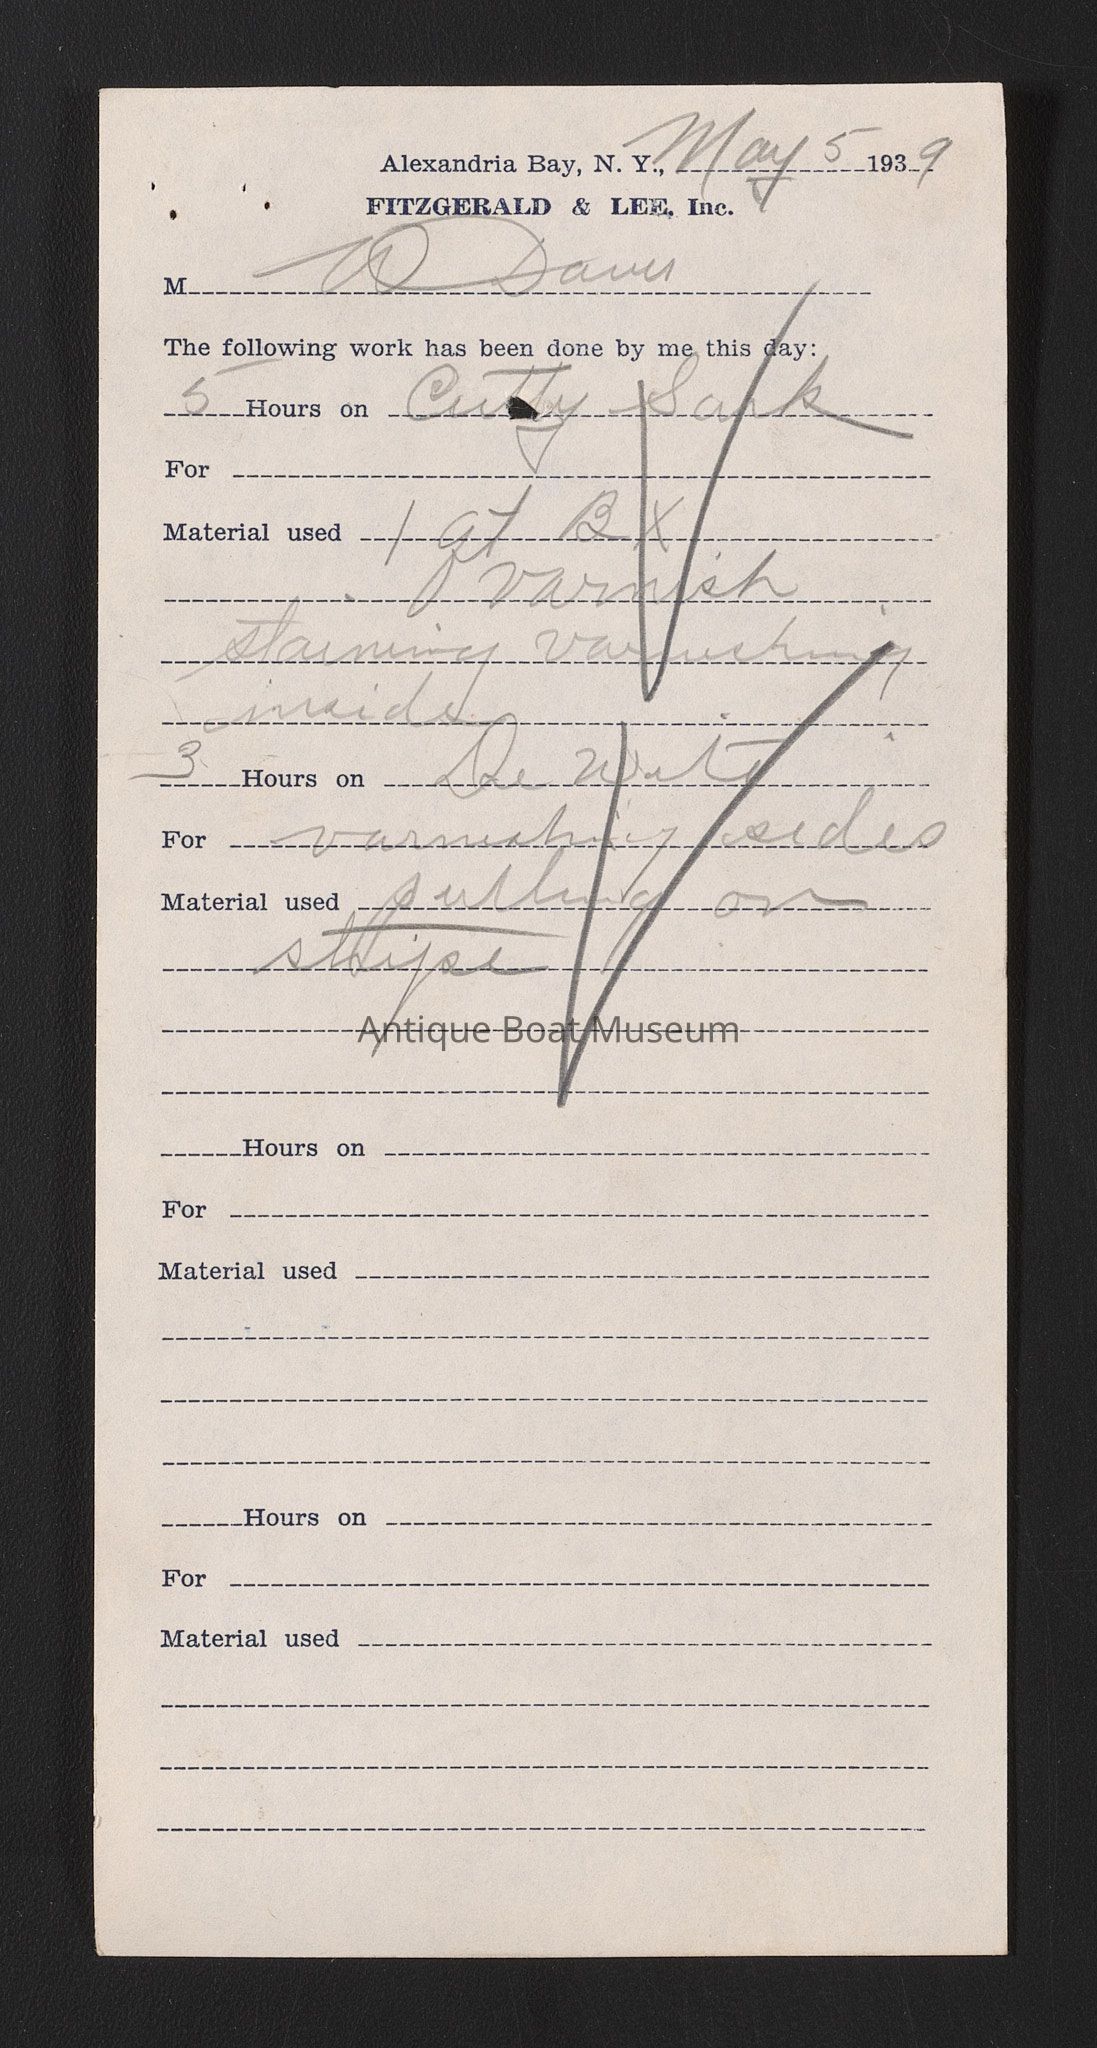 Alexandria Bay, N. Y., May 5 1939
FITZGERALD & LEE, Inc.
M W Davis
The following work has been done by me this day:
5 Hours on Cutty Sark
For
Material used 1 qt B X
varnish
staining varnishing
inside
3 Hours on De Witt
For varnishing sides
Material used putting on
stripe
Antique Boat Museum
Hours on
For
Material used
Hours on
For
Material used